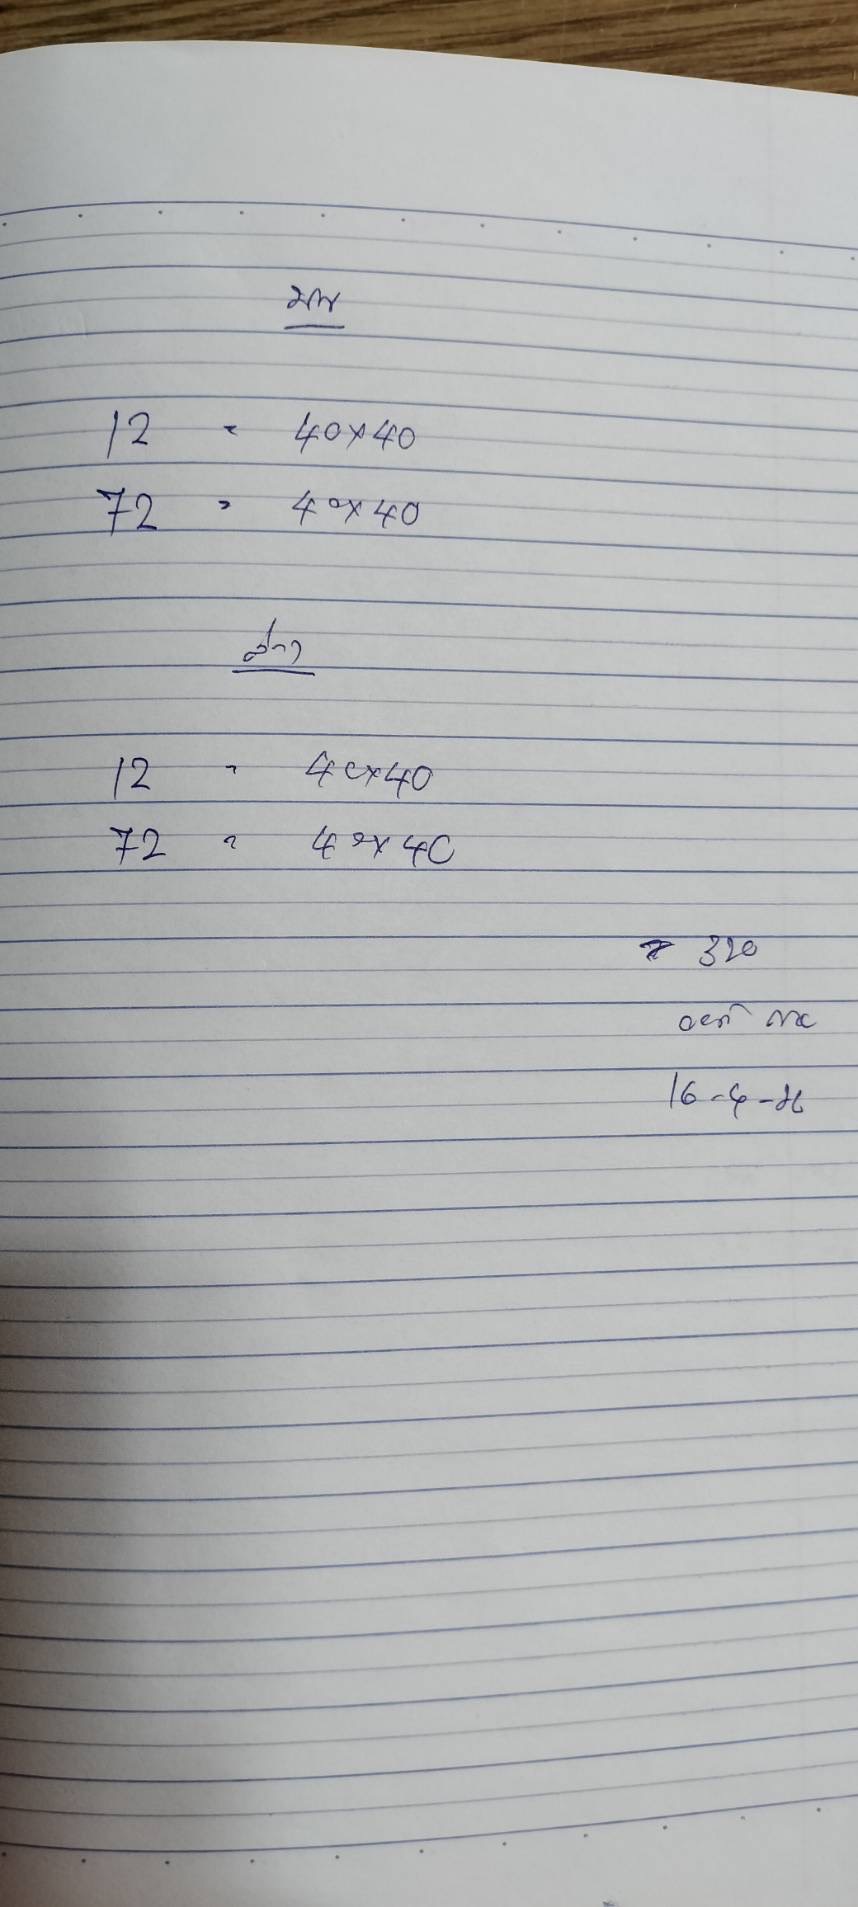 บน
12 = 40×40
72 = 40×40
ล่าง
12 = 40×40
72 = 40×40
320
16-4-26